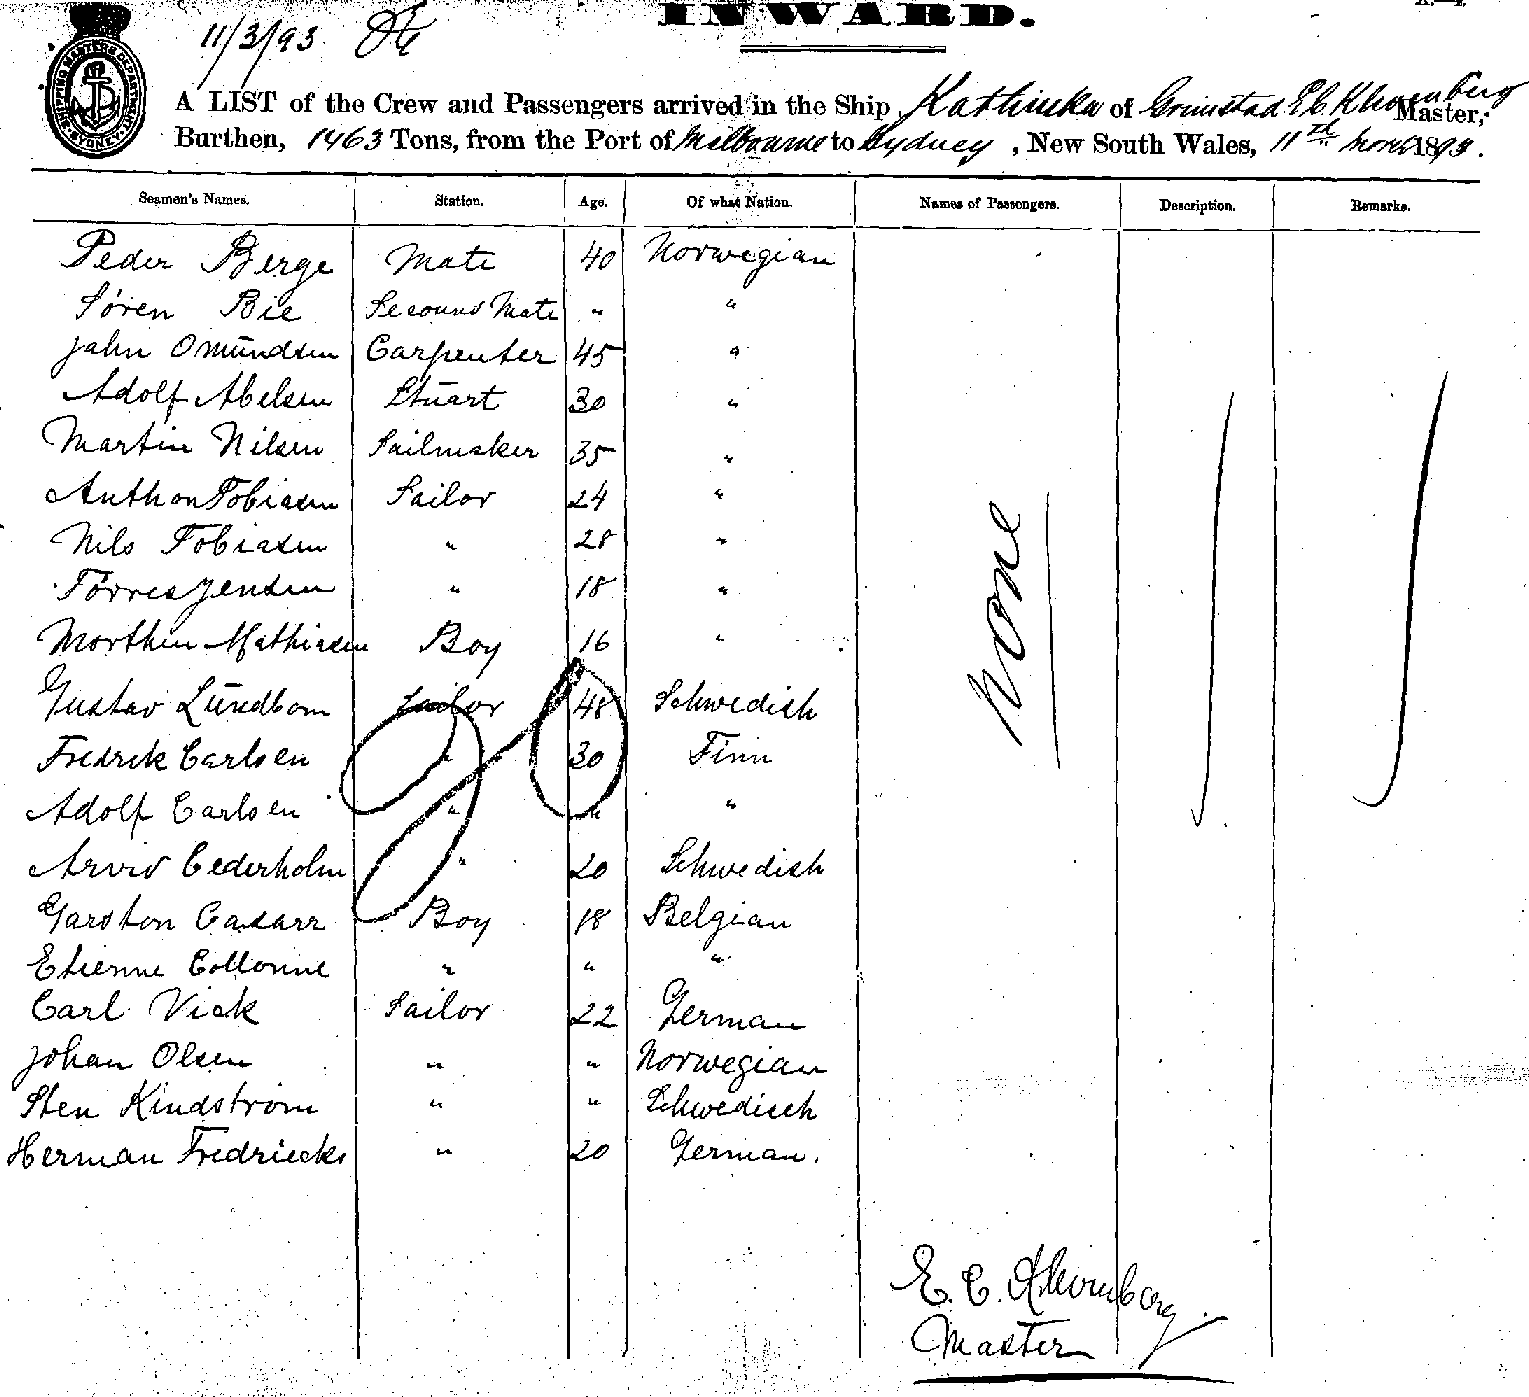 INWARD.
11/3/93
SHIPPING MASTERS DEPARTMENT SYDNEY
A LIST of the Crew and Passengers arrived in the Ship Kathinka of Grimstad E.C. Master,
Burthen, 1463 Tons, from the Port of Melbourne to Sydney, New South Wales, 11th 1893.
Seamen's Names. Station. Age. Of what Nation. Names of Passengers. Description. Remarks.
Peder Berge Mate 40 Norwegian
Sören Bie Second Mate " "
Jahn Omundsen Carpenter 45 "
Adolf Abelsen Stuart 30 "
Martin Nilsen Sailmaker 35 "
Anthon Tobiasen Sailor 24 "
Nils Tobiasen " 28 "
Törres Jensen " 18 "
Morthen Mathiasen Boy 16 "
none
Gustav Lundbom Sailor 48 Schwedish
Fredrik Carlsen " 30 Finn
Adolf Carlsen " " "
Arvid Cederholm " 20 Schwedish
Garston Casarr Boy 18 Belgian
Etienne Collonne " " "
Carl Vick Sailor 22 German
Johan Olsen " " Norwegian
Sten Kindström " " Schwedisch
Herman Fredriecks " 20 German.
E. C.
Master